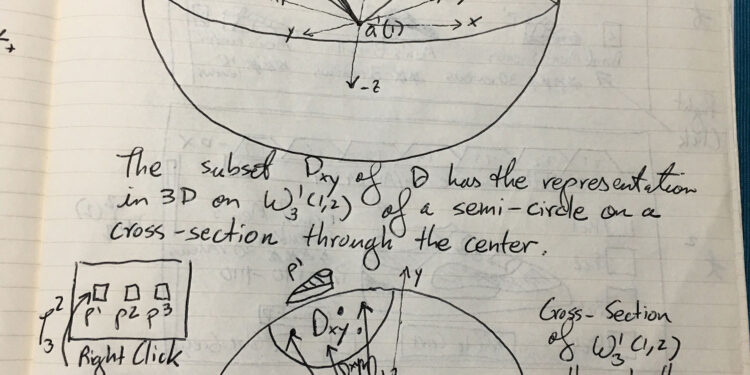 y
a'(1)
x
-z
The subset Dxy of D has the representation
in 3D on W₃'(1,2) of a semi-circle on a
cross-section through the center.
p'
y
p' p2 p3
Right Click
Dxy
Cross-Section
of W₃'(1,2)